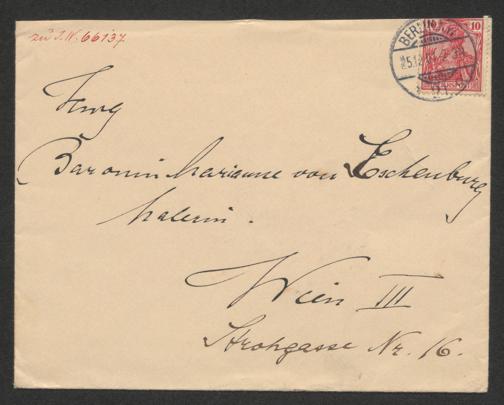 zu I.N. 66137
BERLIN
10
Baronin Marianne von Eschenburg
Malerin.
Wien III
Strohgasse Nr. 16.